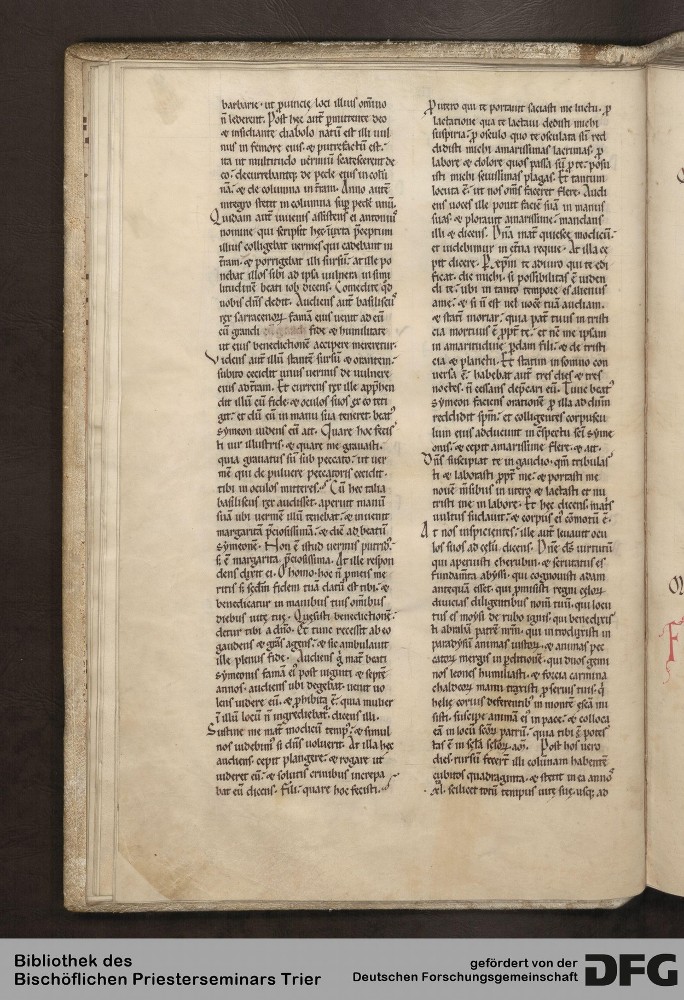 barbarie· ut ꝓuincię loci illius om̄ino
n̄ lederent. Post hec aut̄ ꝑmittente deo
⁊ insidiante diabolo natū est illi uul
nus in femore eius· ⁊ putrefactū est·
ita ut multitudo uermiū scateferent de
eo· decurrebantqꝫ de pede eius in colū
nā· ⁊ de columna in t̄ram. Anno aut̄
integro stetit in columna suꝑ pedē unū.
Quidam aut̄ iuuenis assistens ei antoniꝰ
nomine qui scripsit hec iuxta p̄ceptum
illius colligebat uermes qui cadebant in
t̄ram· ⁊ porrigebat illi sursū· at ille po
nebat illos sibi ad ipsa uulnera in simi
litudinē beati iob dicens. Comedite qd̄
nobis dn̄s dedit. Audiens aut̄ basiliscꝰ
rex sarracenoꝝ famā eius uenit ad eū
cū grandi fide ⁊ humilitate
ut eius benedictionē accipere mereretur·
Videns aut̄ illū stantē sursū ⁊ orantem·
subito cecidit unus uermis de uulnere
eius ad t̄ram. Et currens rex ille app̄hen
dit illū cū fide· ⁊ oculos suos ex eo teti
git· et dū eū in manu sua teneret beatꝰ
symeon uidens eū ait. Quare hoc fecis
ti uir illustris· ⁊ quare me grauasti·
quia grauatus sū sub peccato· ut uer
mē qui de puluere peccatoris cecidit·
tibi in oculos mitteres. Cū hec talia
basiliscus rex audisset· aperuit manū
suā ubi uermē illū tenebat· ⁊ inuenit
margaritā p̄ciosissimā· ⁊ dix̄ ad beatū
symeonē. Non ē istud uermis putridꝰ·
s; ē margarita p̄ciosissima. At ille respon
dens dixit ei. O homo hoc n̄ p̄ meis me
ritis s; sc̄dm fidem tuā datū est tibi· ⁊
benedicatur in manibus tuis omībus
diebus uitę tuę. Quesisti benedictionē·
detur tibi a dn̄o. Et tunc recessit ab eo
gaudens ⁊ gr̄as agens· ⁊ sic ambulauit
ille plenus fide. Audiens g̊ mat̄ beati
symeonis famā ei post uiginti ⁊ septē
annos· audiens ubi degebat· uenit uo
lens uidere eū· ⁊ ꝓhibita ē· quia mulier
ī illū locū n̄ ingrediebat̄· dicens illi.
Sustine me mat̄ modicū tempꝰ· ⁊ simul
nos uidebimꝰ si dn̄s uoluerit. At illa hec
audiens cepit plangere ⁊ rogare ut
uideret eū· ⁊ solutis crinibus increpa
bat eū dicens. Fili· quare hoc fecisti.
Ꝓ utero qui te portauit saciasti me luctu· ꝓ
lactatione qua te lactaui dedisti michi
suspiria· ꝓ osculo quo te osculata sū red
didisti michi amarissimas lacrimas· ꝓ
labore ⁊ dolore quos passa sū ꝓ te· posu
isti michi seuissimas plagas. Et tantum
locuta ē· ut nos om̄s faceret flere. Audi
ens uoces ille posuit faciē suā in manus
suas ⁊ plorauit amarissime· mandans
illi ⁊ dicens. Dn̄a mat̄ quiesce modicū·
et uidebimur in et̄na requie. At illa ce
pit dicere. P̲ xp̄m te adiuro qui te edi
ficat· dic michi· si possibilitas ē uiden
di te· ubi in tanto tempore es alienus
a me· ⁊ si n̄ est uel uocē tuā audiam·
⁊ statī moriar· quia pat̄ tuus in tristi
cia mortuus ē ꝓpt̄ te· et ne me ipsam
in amaritudine ꝑdam fili· ⁊ de tristi
cia ⁊ planctu. Et statim in somno con
uersa ē· habebat aut̄ tres dies ⁊ tres
noctes· n̄ cessans dep̄cari eū. Tunc beatꝰ
symeon faciens orationē ꝓ illa ad dn̄m
reddidit sp̄m· et colligentes corpuscu
lum eius adduxerunt in ꝯspectu sc̄i syme
onis· ⁊ cepit amarissime flere· ⁊ ait.
Dn̄s suscipiat te in gaudio· qm̄ tribulas
ti ⁊ laborasti ꝓpt̄ me· ⁊ portasti me
nouē mīsibus in utero ⁊ lactasti et nu
tristi me in labore. Et hec dicens· mat̄s
uultus sudauit· ⁊ corpus ei cōmotū ē·
At nos inspicientes· ille aut̄ leuauit ocu
los suos ad cęlū dicens. Dn̄e dś uirtutū
qui aperuisti cherubin· ⁊ scrutatus es
fundam̄ta abyssi· qui cognouisti adam
antequā esset· qui ꝓmisisti regni cęloꝝ
diuicias diligentibus nom̄ tuū· qui locu
tus es moysi de rubo ignis· qui benedixis
ti abrahā patrē nr̄m· qui introduxisti in
paradysū animas iustoꝝ· ⁊ animas pec
catoꝝ mergis in ꝑditionē· qui duos gemi
nos leones humiliasti· ⁊ forcia carmina
chaldeoꝝ manu traxisti ꝓ seruis tuis· q̇
helię coruis deferentibꝰ in montē escā mi
sisti· suscipe animā ei in pace· ⁊ colloca
eā in locū sc̄oꝝ patrū· quia tibi ē potes
tas ē in sc̄la sc̄loꝝ· am̄. Post hos uero
dies rursū fecer̄ illi colunam habentē
cubitos quadraginta· ⁊ stetit in ea annoꝰ
xl· scilicet totū tempus uitę suę· usqꝫ ad
Bibliothek des
Bischöflichen Priesterseminars Trier
gefördert von der
Deutschen Forschungsgemeinschaft
DFG